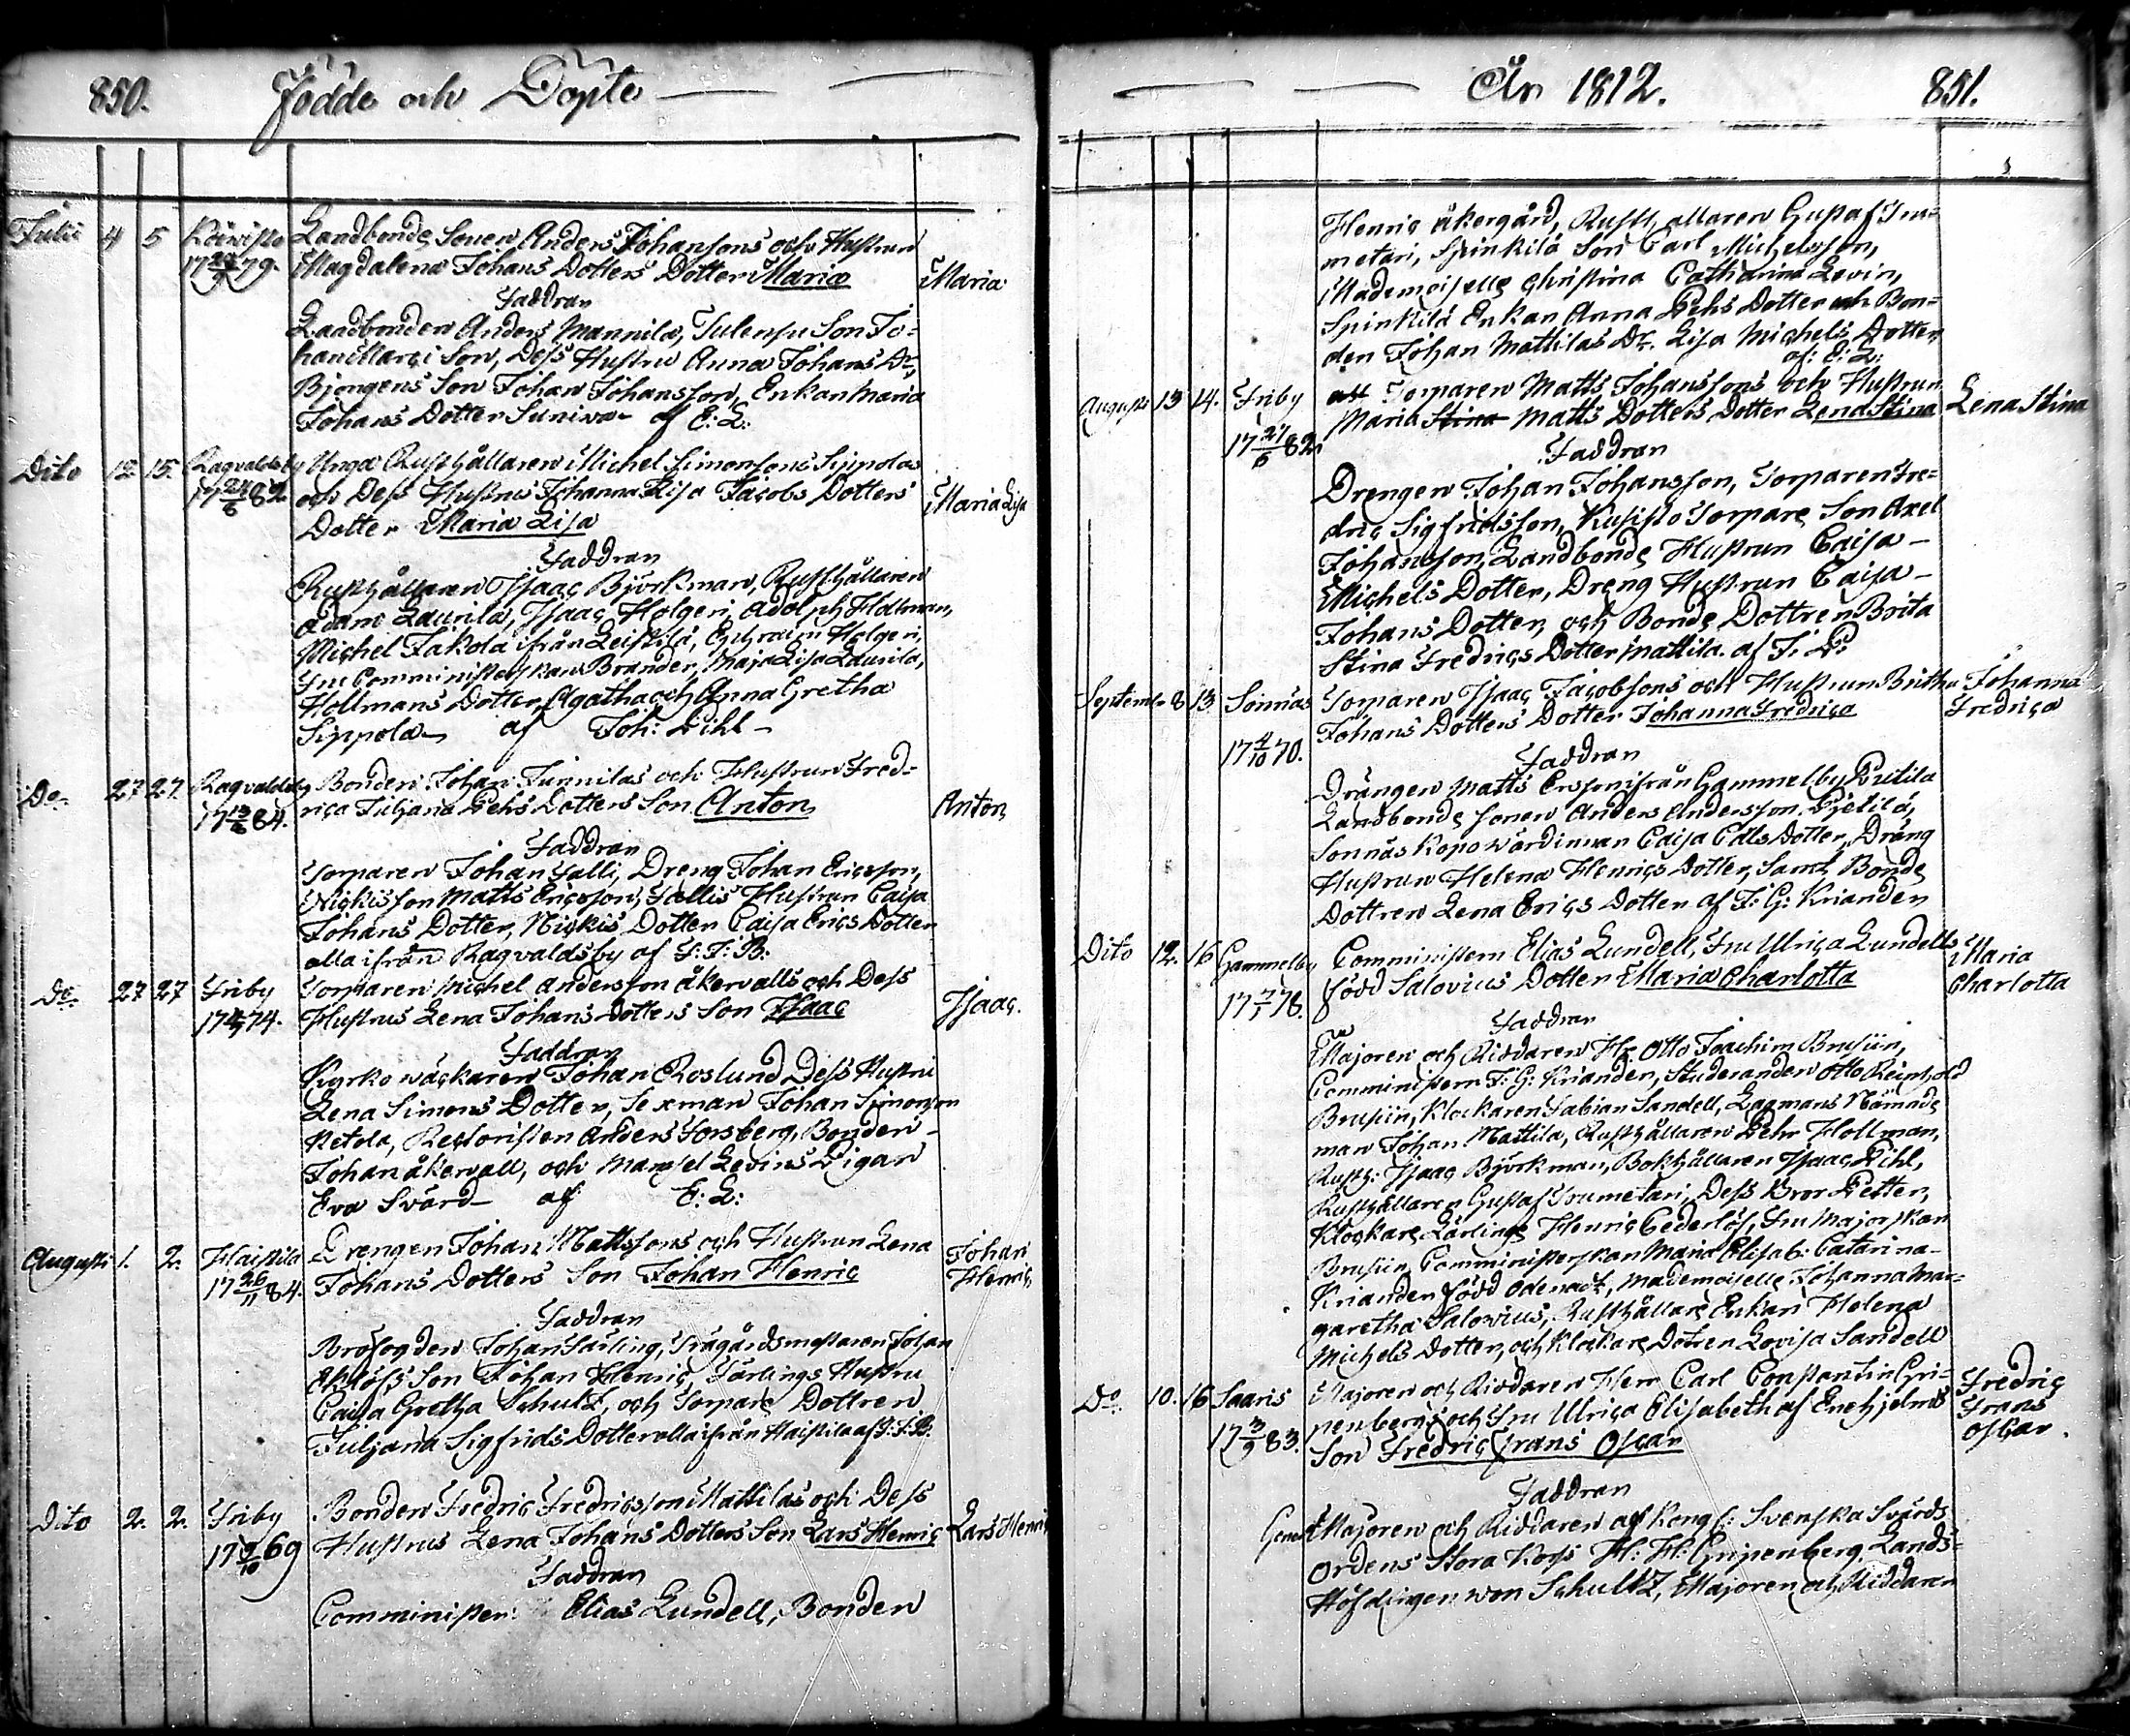 850. Födde och Döpte
Julii 4 5 Köiwisto Landbonde Sonen Anders Johansons och Hustrun
17 79. Magdalena Johans Dotters Dotter Maria Maria
Faddran
Landbonden Anders Mannila, Son Jo-
han Son, Dess Hustru Anna Johans Dr,
Bjengens Son Johan Johansson, Enkan Maria
Johans Dotter Suniwa af E: L:
Dito 12 15. Ragvaldsby Unga Rusthållaren Michel Simonsons Sippolas
17 24/6 82 och Dess Hustrus Johanna Lisa Jacobs Dotters Maria Lisa
Dotter Maria Lisa
Faddran
Rusthållaren Isaac Björkman, Rusthållaren
Adam Laurila, Isaac Holgeri, Adolph Holtman,
Michel Jakola ifrån Leistilä, Ephraim Holgeri,
Fru Comministerskan Brander, Maja Lisa Laurila,
Holtmans Dotter Agatha och Anna Gretha
Sippola af Joh: Pihl
Do 27 27. Ragvaldsby Bonden Johan Junnilas och Hustrun Fred-
17 13/6 84. rica Juliana Pehrs Dotters Son Anton Anton
Faddran
Torparen Johan Falli, Dreng Johan Ericsson,
Nickis son Matts Ericsson, Fallis Hustrun Caisa
Johans Dotter, Nickis Dotter Caisa Erics Dotter
alla ifrån Ragvaldsby af F: F: B:
Do 27 27 Friby Torparen Michel Andersson Åkervalls och Dess
17 74. Hustrus Lena Johans Dotters Son Isaac Isaac.
Faddran
Kyrko wäckaren Johan Roslund Dess Hustru
Lena Simons Dotter, Sexman Johan Simonson
Ketola, Anders Forsberg, Bonden
Johan Åkervall, och Mamsel Levins Pigan
Eva Svärd af E: L:
Augusti 1. 2. Haistila Drengen Johan Mattssons och Hustrun Lena Johan
17 26/11 84. Johans Dotters Son Johan Henric Henric
Faddran
Brofogden Johan Färling, Trägårdsmestaren Johan
Son Johan Henric, Färlings Hustru
Caisa Gretha Schultz, och Torpare Dottren
Juljana Sigfrids Dotter alla ifrån Haistila af F: F: B:
Dito 2. 2. Friby Bonden Fredric Fredricsson Mattilas och Dess
17 9/10 69 Hustrus Lena Johans Dotters Son Lars Henric Lars Henric
Faddran
Comministern Elias Lundell, Bonden
År 1812. 851.
Henric Åkergård, Rusthållaren Gustaf Tru-
metari, Spinkilä Son Carl Michelsson,
Mademoiselle Christina Catharina Levin,
Spinkilä Enkan Anna Pehrs Dotter och Bon-
den Johan Mattilas Dr. Lisa Michels Dotter
af: E: L:
Augusti 13 14. Friby Torparen Matts Johanssons och Hustrun
17 27/6 82 Maria Stina Matts Dotters Dotter Lena Stina Lena Stina
Faddran
Drengen Johan Johansson, Torparen Fre-
dric Sigfridsson, Kusisto Torpare Son Axel
Johansson, Landbonde Hustrun Caisa
Michels Dotter, Dreng Hustrun Caisa
Johans Dotter, och Bonde Dottren Brita
Stina Fredrics Dotter Mattila. af J: P:
September 8 13 Sonnäs Torparen Isaac Jacobsons och Hustrun Britha Johanna
17 4/10 70. Johans Dotters Dotter Johanna Fredrica Fredrica
Faddran
Drängen Matts Ersson ifrån Gammelby
Landbonde sonen Anders Andersson
Sonnäs Kopo wärdinnan Caisa Dotter, Dräng
Hustrun Helena Henrics Dotter, Samt Bonde
Dottren Lena Erics Dotter af F: G: Kriander
Dito 12. 16 Gammelby Comministern Elias Lundell, Fru Ulrica Lundells Maria
17 7/1 78. född Salovius Dotter Maria Charlotta Charlotta
Faddran
Majoren och Riddaren Hr Otto Joachim Brusiin,
Comministern F: G: Kriander, Studeranden Otto Reinhold
Brusiin, Klockaren Fabian Sandell, Lagmans Nämnde
man Johan Mattila, Rusthållaren Pehr Hollman,
Rusth: Isaac Björkman, Bokhållaren Isaac Pihl,
Rusthållaren Gustaf Trumetari, Dess Bror Petter,
Klockare Lärling Henric Cederlöf, Fru Majorskan
Brusiin, Comministerskan Maria Elisab: Catarina
Kriander född Odenadt, Mademoiselle Johanna Mar-
garetha Salovius, Rusthållare Enkan Helena
Michels Dotter, och Klockare Dotren Lovisa Sandell
Do 10. 16 Saaris Majoren och Riddaren Herr Carl Constantin Gri- Fredric
17 3/9 83. penbergs och Fru Ulrica Elisabeth af Enehjelms Frans
Son Fredric Frans Oscar Oscar.
Faddran
Gene Majoren och Riddaren af Kongl: Svenska Svärds
Ordens Stora Kors H: H: Gripenberg, Lands-
Höfdingen von Schultz, Majoren och Riddaren